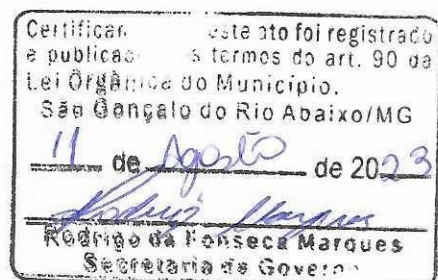 Certificam este ato foi registrado
e publicad s termos do art. 90 da
Lei Orgânica do Município.
São Gonçalo do Rio Abaixo/MG
11 de Agosto de 2023
Rodrigo Marques
Rodrigo da Fonseca Marques
Secretaria de Governo